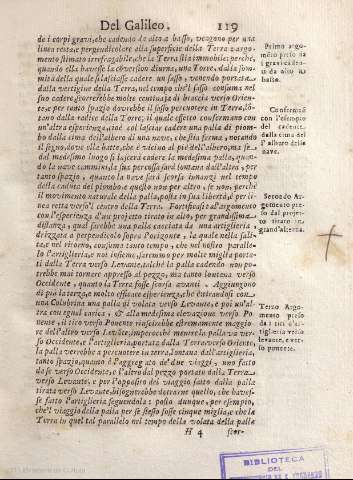 Del Galileo. 119
de i corpi gravi, che cadendo da alto a basso, vengono per una
linea retta, e perpendicolare alla superficie della Terra argo-
mento stimato irrefragabile, che la Terra stia immobile; perchè,
quando ella havesse la conversion diurna, una Torre, dalla som-
mità della quale si lasciasse cadere un sasso, venendo portata
dalla vertigine della Terra, nel tempo che'l sasso consuma nel
suo cadere, scorrerebbe molte centinaja di braccia verso Orien-
te, e per tanto spazio dovrebbe il sasso percuotere in Terra, lon-
tano dalla radice della Torre; il quale effetto confermano con
un'altra esperienza, col lasciar cadere una palla di piom-
bo dalla cima dell'albero di una nave, che stia ferma, notando
il segno, dove ella batte, che è vicino al piè dell'albero, ma se
dal medesimo luogo si lascerà cadere la medesima palla, quan-
do la nave cammini, la sua percossa sarà lontana dall'altra, per
tanto spazio, quanto la nave sarà scorsa innanzi nel tempo
della caduta del piombo, e questo non per altro, se non, perchè
il movimento naturale della palla, posta in sua libertà, è per li-
nea retta verso'l centro della Terra. Fortificasi tal'argomento
con l'esperienza d'un projetto tirato in alto, per grandissima
distanza, qual sarebbe una palla cacciata da una artiglieria
drizzata a perpendicolo sopra l'orizonte, la quale nella sali-
ta, e nel ritorno, consuma tanto tempo, che nel nostro paralle-
lo l'artiglieria, e noi insieme, saremmo per molte miglia porta-
ti dalla Terra verso Levante, talchè la palla cadendo non po-
trebbe mai tornare appresso al pezzo, ma tanto lontana verso
Occidente, quanto la Terra fosse scorsa avanti. Aggiungono
di più la terza, e molto efficace esperienza, che è, tirandosi con
una Colubrina una palla di volata verso Levante, e poi un'al-
tra con egual carica, & alla medesima elevazione verso Po-
nente, il tiro verso Ponente riuscirebbe estremamente maggio-
re dell'altro verso Levante, imperocchè mentre la palla và ver-
so Occidente, e l'artiglieria, portata dalla Terra, verso Oriente,
la palla verrebbe a percuotere in terra, lontana dall'artiglieria,
tanto spazio, quanto è l'aggregato de' due viaggi, uno fatto
da se verso Occidente, e l'altro dal pezzo portato dalla Terra
verso Levante, e per l'opposito del viaggio fatto dalla palla
tirata verso Levante, bisognerebbe detrarne quello, che haves-
se fatto l'artiglieria seguendola; posto dunque, per esempio,
che'l viaggio della palla per se stesso fosse cinque miglia, e che la
Terra in quel tal parallelo nel tempo della volata della palla
H 4 scor-
Primo argo-
mento preso da
i gravi caden-
ti da alto a
basso.
Confermasi
con l'esempio
del cadente
dalla cima del-
l'albero della
nave.
Secondo Ar-
gomento pre-
so dal projet-
to tirato in
grand'altezza.
Terzo Argo-
mento preso
da i tiri d'ar-
tiglieria verso
Levante, e ver-
so ponente.
BIBLIOTECA
DEL